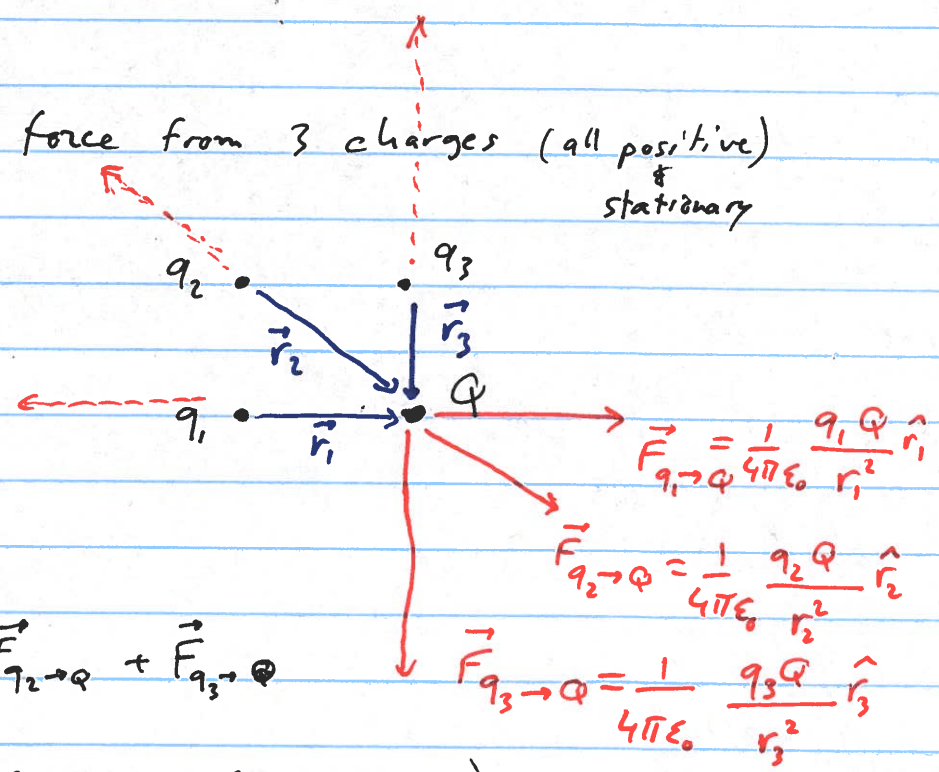 force from 3 charges (all positive)
&
stationary
q₂
q₃
r⃗₂
r⃗₃
Q
q₁
r⃗₁
F⃗_{q₁→Q} = 1/(4πε₀) q₁Q/r₁² r̂₁
F⃗_{q₂→Q} = 1/(4πε₀) q₂Q/r₂² r̂₂
F⃗_{q₂→Q} + F⃗_{q₃→Q}
F⃗_{q₃→Q} = 1/(4πε₀) q₃Q/r₃² r̂₃